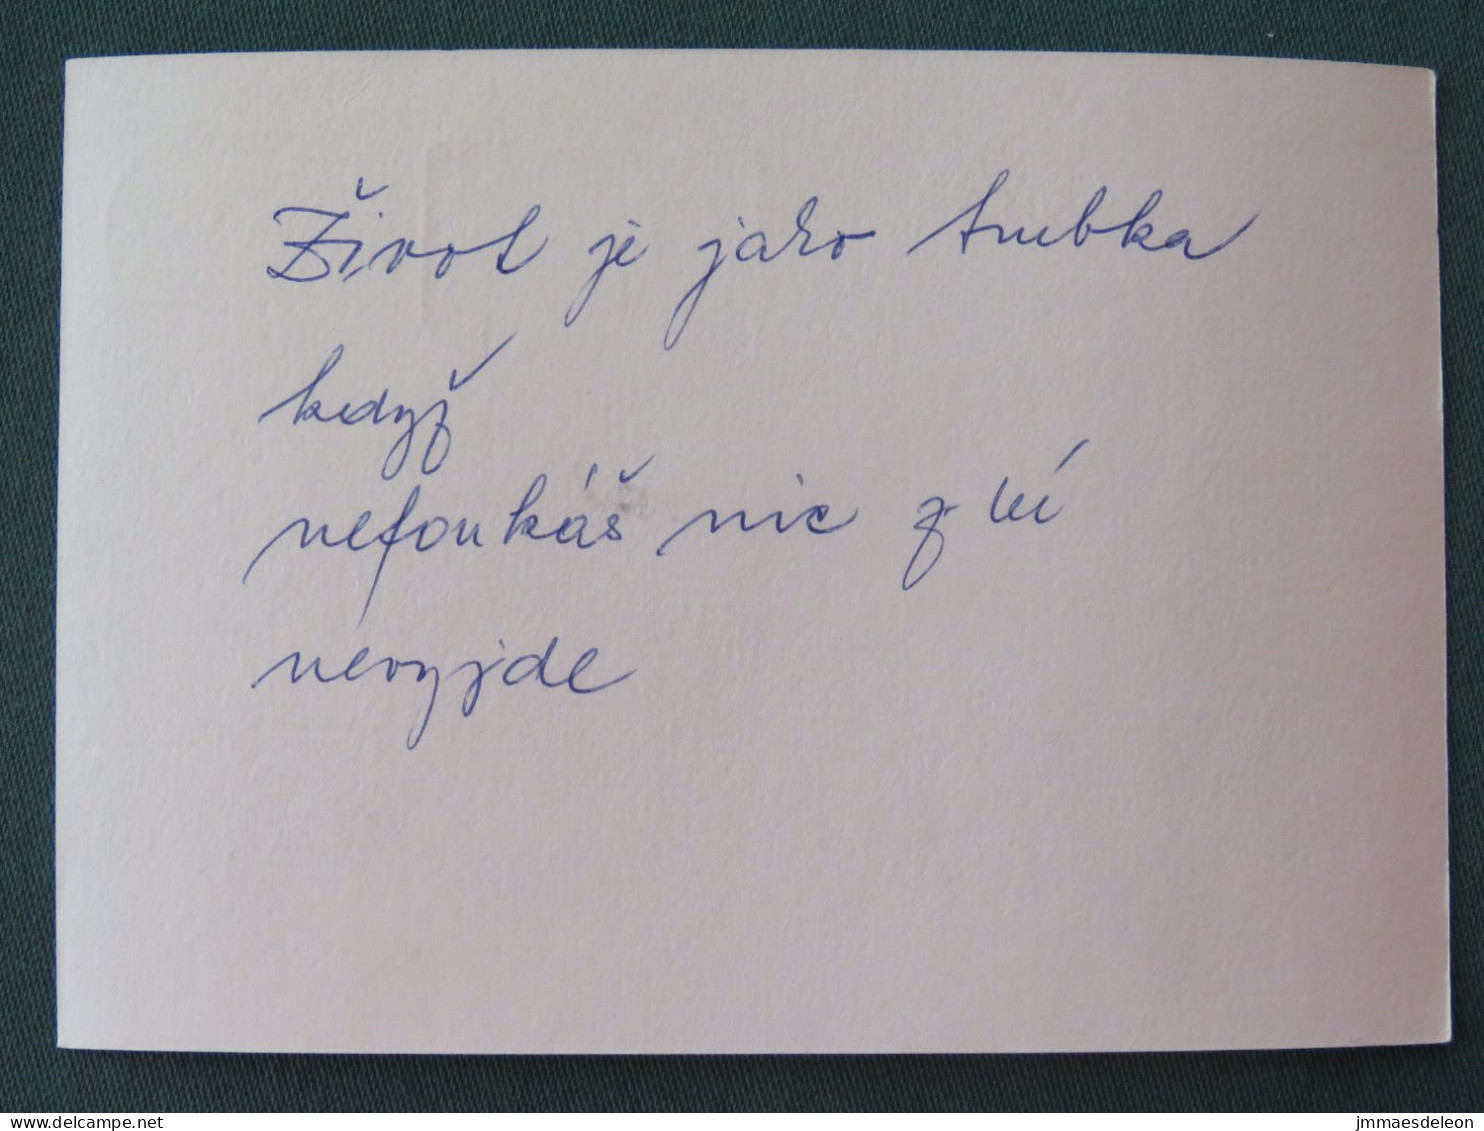 Život je jako trubka
když
nefoukáš nic z ní
nevyjde
delcampe.net
jmmaesdeleon